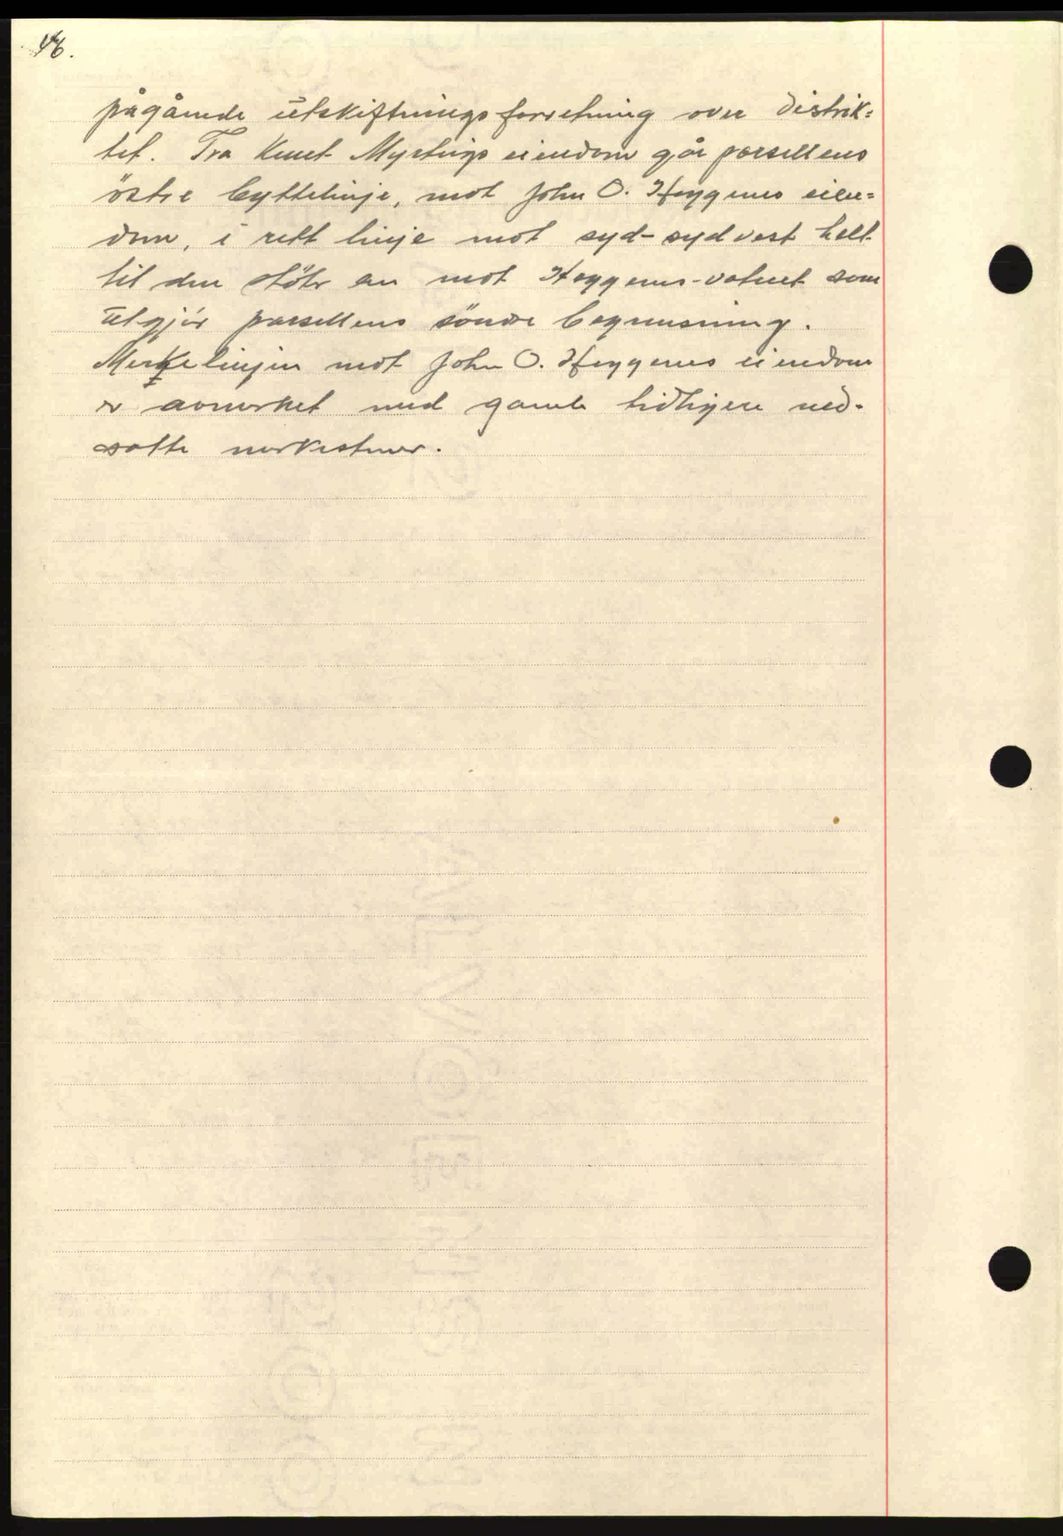 46.
pågående utskiftningsforretning over distrik=
tet. Fra Knut Myrtings eiendom går parsellens
östre byttelinje, mot John O. Heggenes eien=
dom, i rett linje mot syd-sydvest helt
til den støter an mot Heggenes-vatnet som
utgjör parsellens söndre begrensning.
Merkelinjen mot John O. Heggenes eiendom
er avmerket med gamle tidligere ned-
satte merkestener.